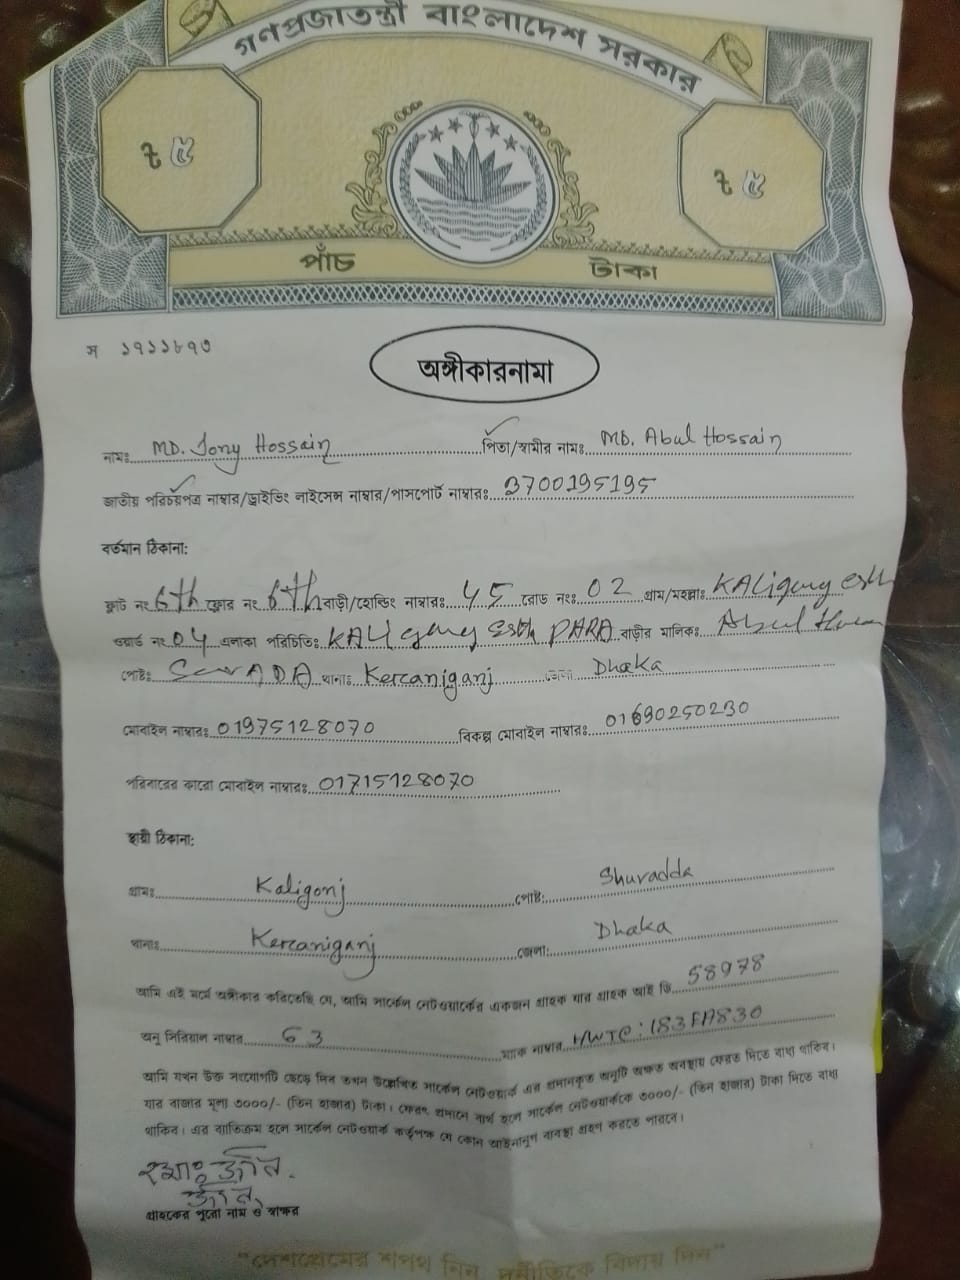 গণপ্রজাতন্ত্রী বাংলাদেশ সরকার
৳ ৫ ৳ ৫
পাঁচ টাকা
স ১৭১১৮৭৩
অঙ্গীকারনামা
নামঃ MD. Jony Hossain পিতা/স্বামীর নামঃ MD. Abul Hossain
জাতীয় পরিচয়পত্র নাম্বার/ড্রাইভিং লাইসেন্স নাম্বার/পাসপোর্ট নাম্বারঃ 3700195195
বর্তমান ঠিকানা:
ফ্লাট নং 6th ফ্লোর নং 6th বাড়ী/হোল্ডিং নাম্বারঃ 45 রোড নংঃ 02 গ্রাম/মহল্লাঃ KALigang
ওয়ার্ড নং 04 এলাকা পরিচিতিঃ KALigang PARA বাড়ীর মালিকঃ Abul
পোষ্টঃ থানাঃ Keraniganj জেলা Dhaka
মোবাইল নাম্বারঃ 01975128070 বিকল্প মোবাইল নাম্বারঃ 01690250230
পরিবারের কারো মোবাইল নাম্বারঃ 01715128070
স্থায়ী ঠিকানা:
গ্রামঃ Kaligonj পোষ্ট: Shuradda
থানাঃ Keraniganj জেলা: Dhaka
আমি এই মর্মে অঙ্গীকার করিতেছি যে, আমি সার্কেল নেটওয়ার্কের একজন গ্রাহক যার গ্রাহক আই ডি 58978
অনু সিরিয়াল নাম্বার 63 ম্যাক নাম্বার HWTC: 183FA830
আমি যখন উক্ত সংযোগটি ছেড়ে দিব তখন উল্লেখিত সার্কেল নেটওয়ার্ক এর প্রদানকৃত অনুটি অক্ষত অবস্থায় ফেরত দিতে বাধ্য থাকিব।
যার বাজার মূল্য ৩০০০/- (তিন হাজার) টাকা। ফেরৎ প্রদানে ব্যর্থ হলে সার্কেল নেটওয়ার্ককে ৩০০০/- (তিন হাজার) টাকা দিতে বাধ্য
থাকিব। এর ব্যতিক্রম হলে সার্কেল নেটওয়ার্ক কর্তৃপক্ষ যে কোন আইনানুগ ব্যবস্থা গ্রহণ করতে পারবে।
গ্রাহকের পুরো নাম ও স্বাক্ষর
"দেশপ্রেমের শপথ নিন, দুর্নীতিকে বিদায় দিন"